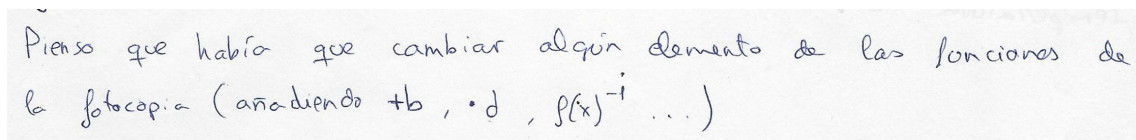 Pienso que había que cambiar algún elemento de las funciones de
la fotocopia (añadiendo +b, ·d, f(x)⁻¹ ...)